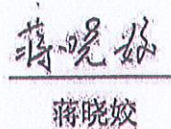 蒋晓姣
蒋晓姣